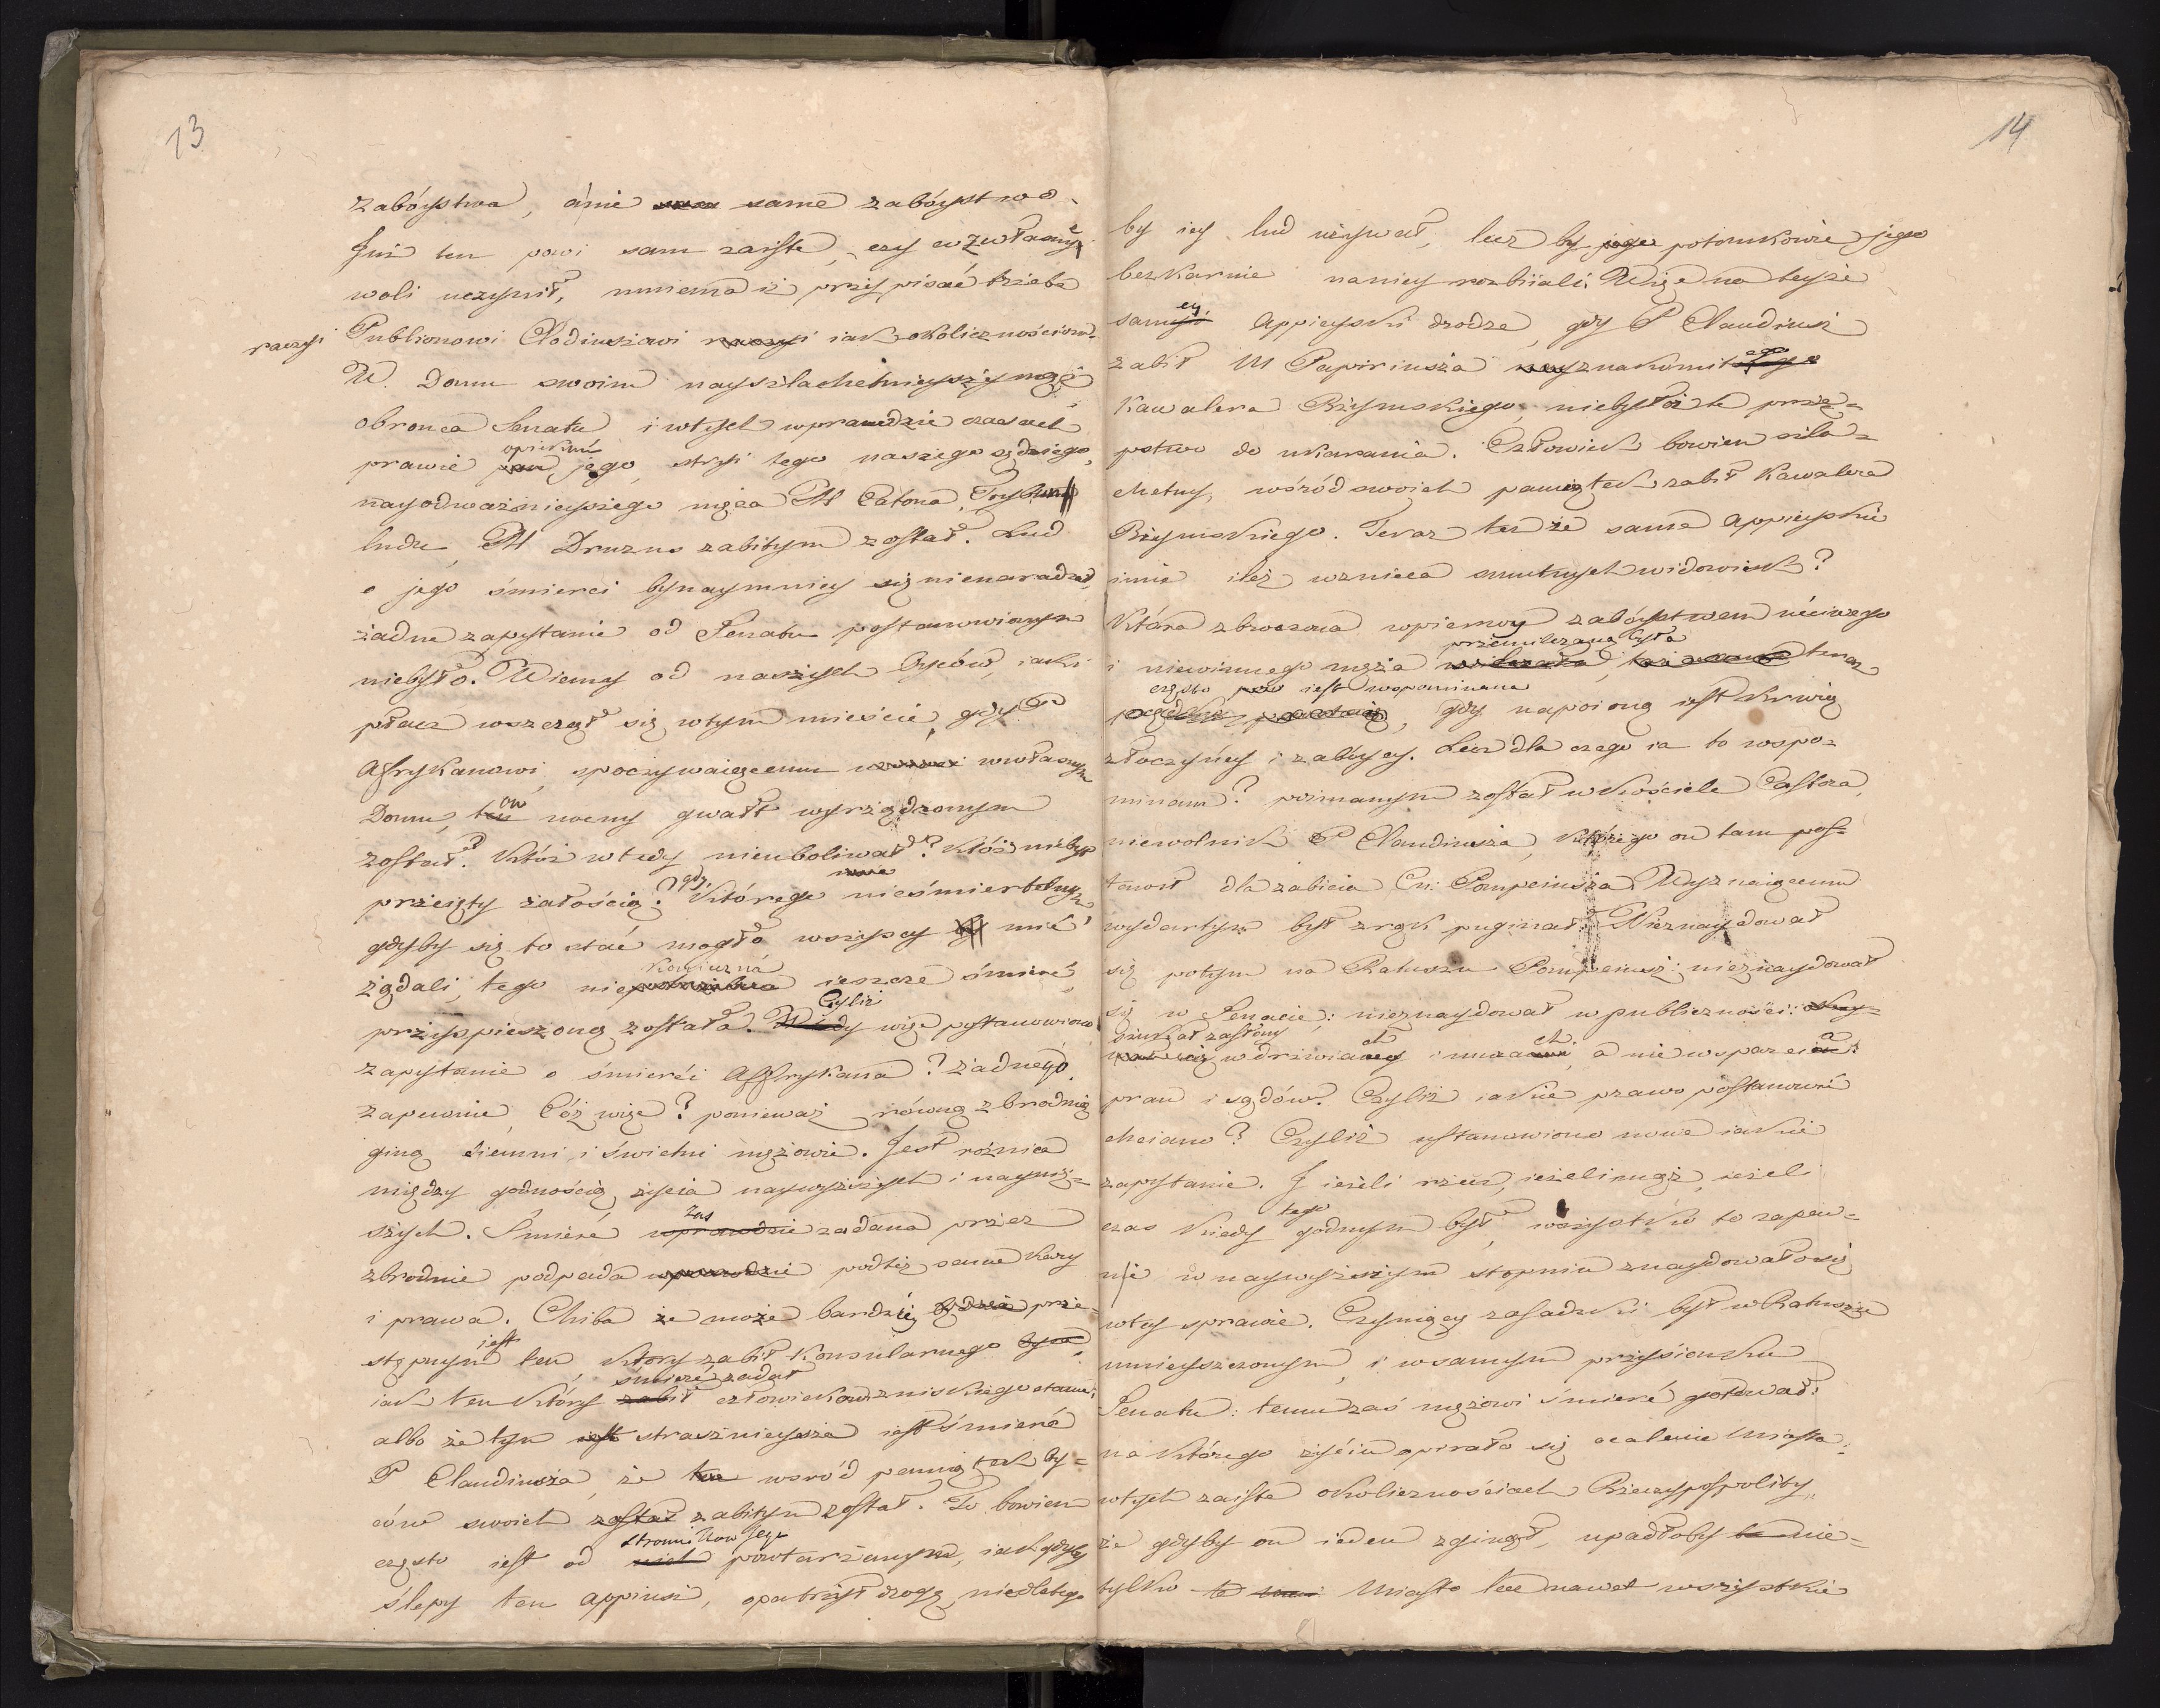 13
zabóystwa, ánie same zabóystwo.
Już ten powi sam zaiste, czy z własney
woli uczynił, mniema iż przypisać trzeba
raczyi Publionowi Clodiuszowi raczyi iak okolicznościom.
W. Domu swoim nayszlachetnieyszy mąż
obronca Senatu i wtych wprawdzie czasach
opiekun
prawie pan jego, stryi tego naszego sędziego,
nayodważnieyszego męża M Catona, Trybun
ludu, M Druzus zabitym został. Lud
o jego śmierci bynaymniey się nienaradzał,
żadne zapytanie od Senatu postanowionym
niebyło. Wiemy od naszych Oyców, iaki
płacz wszczął się wtym mieście, gdy P
Afrykanowi spoczywaiącemu wwłasnym
ów
Domu, ten nocny gwałt wyrządzonym
został? Któż wtedy nieuboliwał? Któż niebył
gdy
przeięty żałością? Którego nieśmiertelnym,
gdyby się to stać mogło wszyscy mieć
konieczná
żądali, tego nie potrzebna ieszcze śmierć,
Czyliż
przyspieszoną została. Wtedy więc postanowiono
zapytanie o śmierći Affrykana? żadnego
zapewnie. Cóż więc? ponieważ równą zbrodnią
giną ciemni, i świetni mężowie. Jest różnica
między godnością życia naywyższych i nayniż=
szych. Śmierć
zas
wprawdzie zadana przez
zbrodnie podpada wprawdzie podtęż same kary
i prawa. Chiba że może bardziey będzie prze=
iest
stępnym ten, który zabił Konsularnego oyca,
śmierć zadał
iak ten który zabił człowiekowi zniskiego stanu;
albo że tym iest straszneysza iest śmierć
P Claudiusza, że ten wśród pamiątek Oy=
ców swoich został zabitym został. To bowiem
stronnikow Jego
często iest od nich powtarzanym, iak gdyby
ślepy ten Appiusz, opatrzył drogę, niedlatego
14
by iey lud używał, lecz by jego potomkowie jego
bezkarnie naniey rozbiiali: Więc na teyże
ey.
samyi Appieyski drodze, gdy P Claudiusz
ego
zabił M Papiriusza nayznakomitszego
Kawalera Rzymskiego, niebyło te przę=
pstwo do ukarania. Człowiek bowiem szla=
chetny, wśród swoich pamiątek zabił Kawalera
Rzymskiego. Teraz tenże same Appieyskie
imie ileż wznieca smutnych widowisk?
Która zbroczona wpierwy zabóystwem ućciwego
przemilczaną była
i niewinnego męża wilczała, teraz
często iest wspominana
gdy napoioną iest krwią
złoczyńcy i zabóycy. Lecz dla czego ia to wspo=
minam? poimanym został wkościele Castora,
niewolnik P Claudiusza, którego on tam pos=
tawił dla zabicia Cn: Pompeiusza. Wyznaiącemu
wydartym był zrąk puginał. Nieznaydował
się potym na Ratuszu Pompeiusz: nieznaydował
się w Senacie; nieznaydował wpubliczności:
Szukał zasłony
ch ch
wdrzwiach i murach, a nie wsparcia
praw i sądów? Czyliż iakie prawo postanowić
chciano? Czyliż ustanowiono nowe iakie
zapytanie. J ieżeli rzecz, ieżeli mąż, ieżeli
tego
czas kiedy godnym był, wszystko to zapew=
nie w naywyższym stopniu znaydowało się
wtey sprawie. Czyniący zasadzki był w Ratuszu
umieszczonym, i wsamym przysionku
Senatu: temu zaś mężowi śmierć gotował:
na którego życiu opirało się ocalenie Miasta:
wtych zaiste okolicznościach Rzeczypospolity,
że gdyby on ieden zginął, upadłoby nie=
tylko te Miasto lecz nawet wszystkie